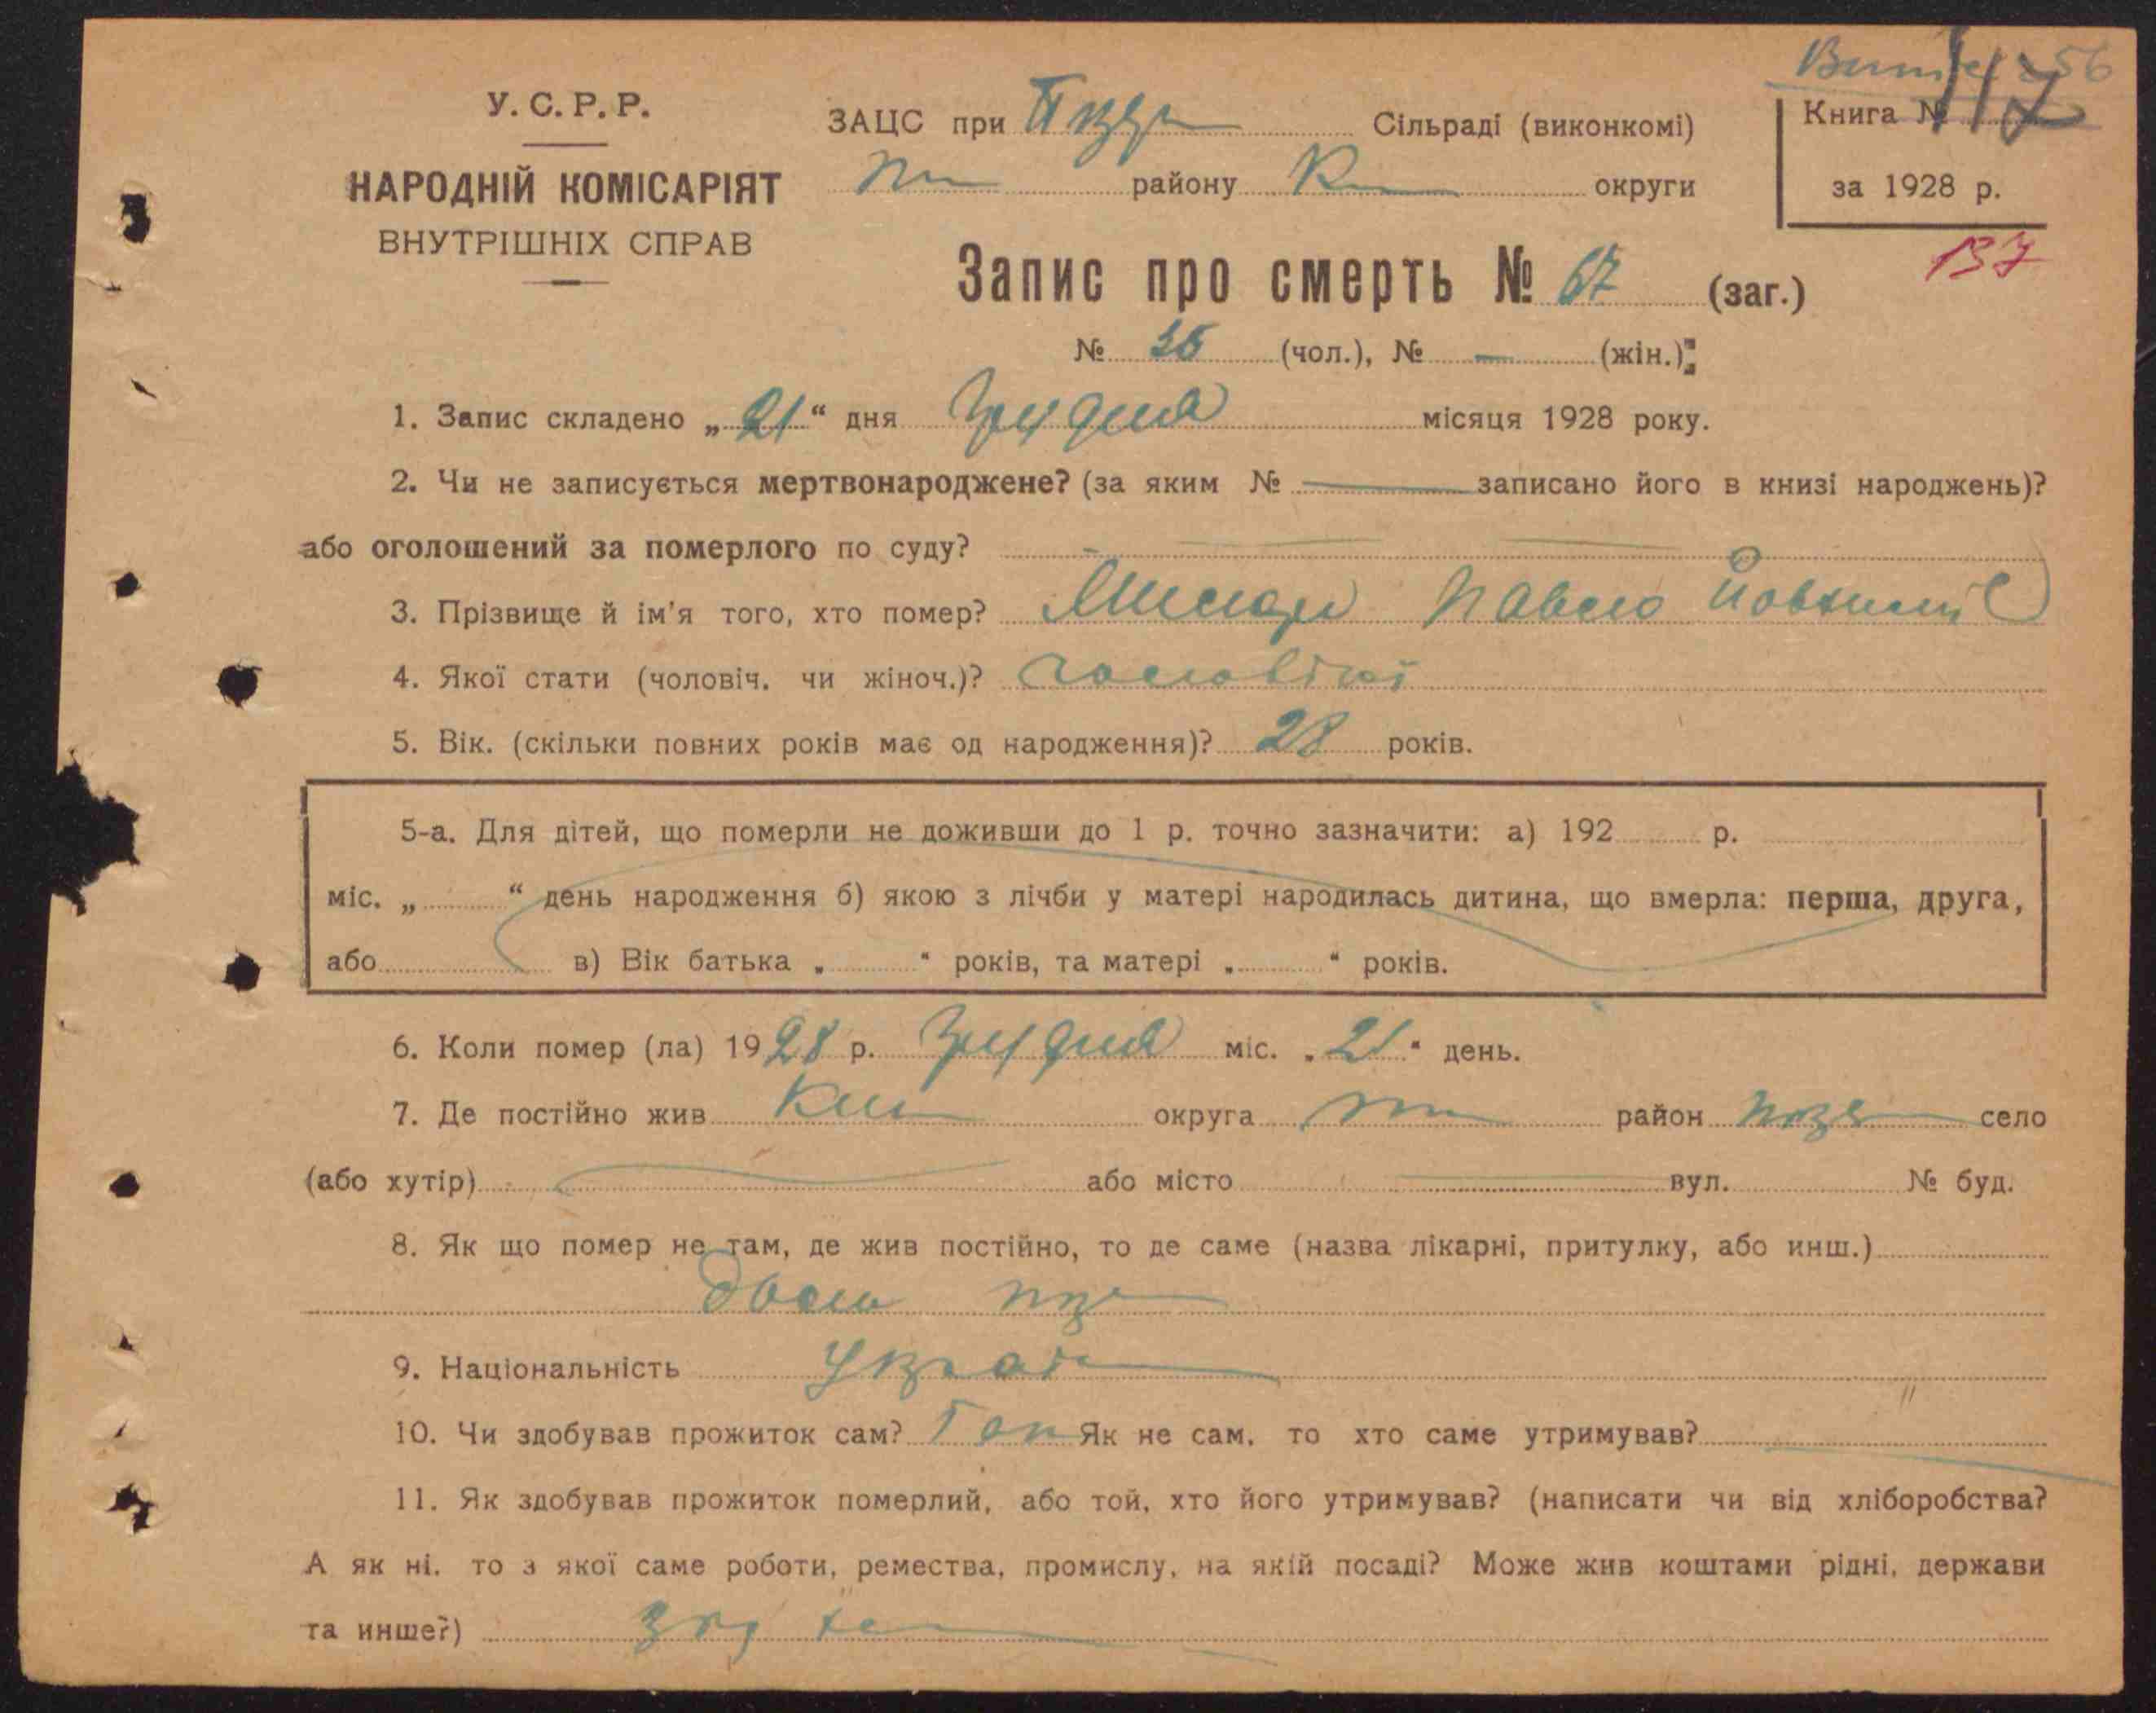 У. С. Р. Р.
НАРОДНІЙ КОМІСАРІЯТ
ВНУТРІШНІХ СПРАВ
ЗАЦС при Сільраді (виконкомі)
району округи
Книга № 117
за 1928 р.
137
Запис про смерть № 67 (заг.)
№ 36 (чол.), № — (жін.)
1. Запис складено „21“ дня Грудня місяця 1928 року.
2. Чи не записується мертвонароджене? (за яким № — записано його в книзі народжень)?
або оголошений за померлого по суду? —
3. Прізвище й ім'я того, хто помер? Павло
4. Якої стати (чоловіч. чи жіноч.)? чоловічої
5. Вік. (скільки повних років має од народження)? 28 років.
5-а. Для дітей, що померли не доживши до 1 р. точно зазначити: а) 192 р.
міс. „ “ день народження б) якою з лічби у матері народилась дитина, що вмерла: перша, друга,
або в) Вік батька „ “ років, та матері „ “ років.
6. Коли помер (ла) 1928 р. Грудня міс. „21“ день.
7. Де постійно жив округа район село
(або хутір) — або місто — вул. № буд.
8. Як що помер не там, де жив постійно, то де саме (назва лікарні, притулку, або инш.)
9. Національність Украї
10. Чи здобував прожиток сам? Так Як не сам, то хто саме утримував? —
11. Як здобував прожиток померлий, або той, хто його утримував? (написати чи від хліборобства?
А як ні, то з якої саме роботи, ремества, промислу, на якій посаді? Може жив коштами рідні, держави
та инше?)